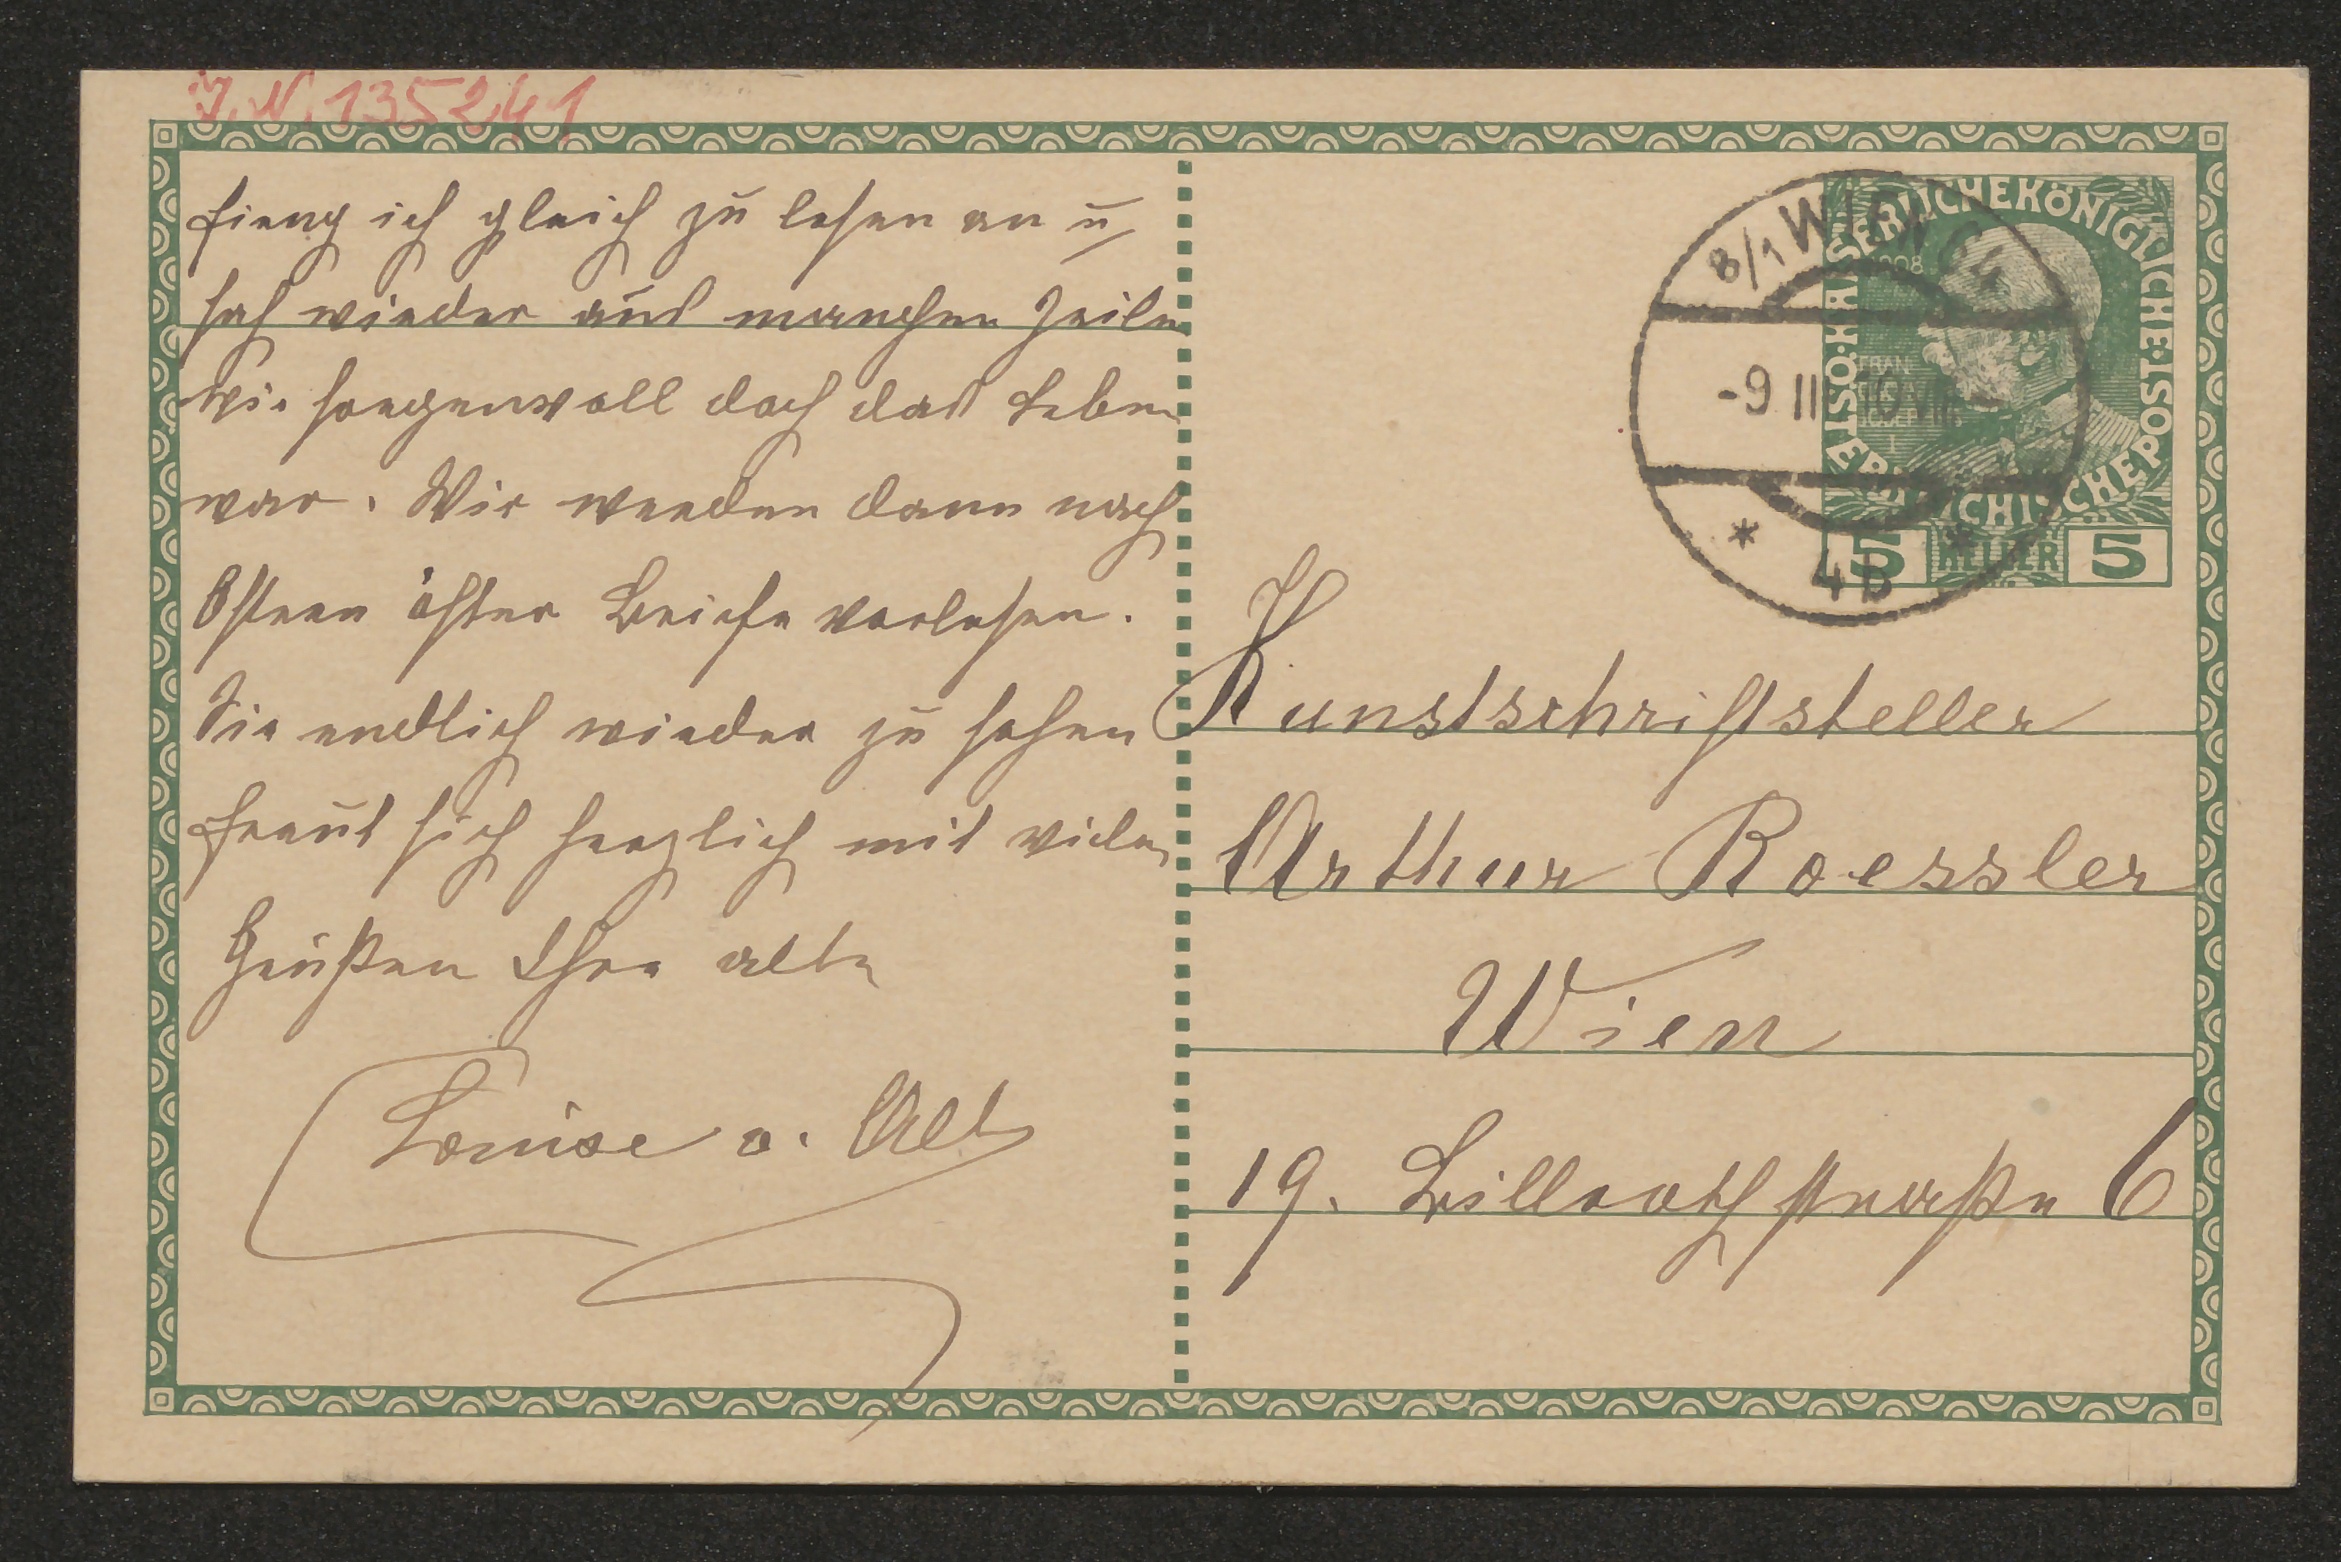 J. N. 135241
fieng ich gleich zu lesen an u
sah wieder aus manchen Zeilen
wie sorgenvoll doch das Leben
war. Wir werden dann nach
Ostern öfter Briefe vorlesen.
Sie endlich wieder zu sehen
freut sich herzlich mit vielen
Grüßen Ihre alte
Louise v. Alt
8/1 WIEN
-9 II 10
4b
KAISERLICHE KÖNIGLICHE
ÖSTERREICHISCHE POST
1908
FRANZ JOSEPH I
5 HELLER 5
Kunstschriftsteller
Arthur Roessler
Wien
19. Billrothstraße 6